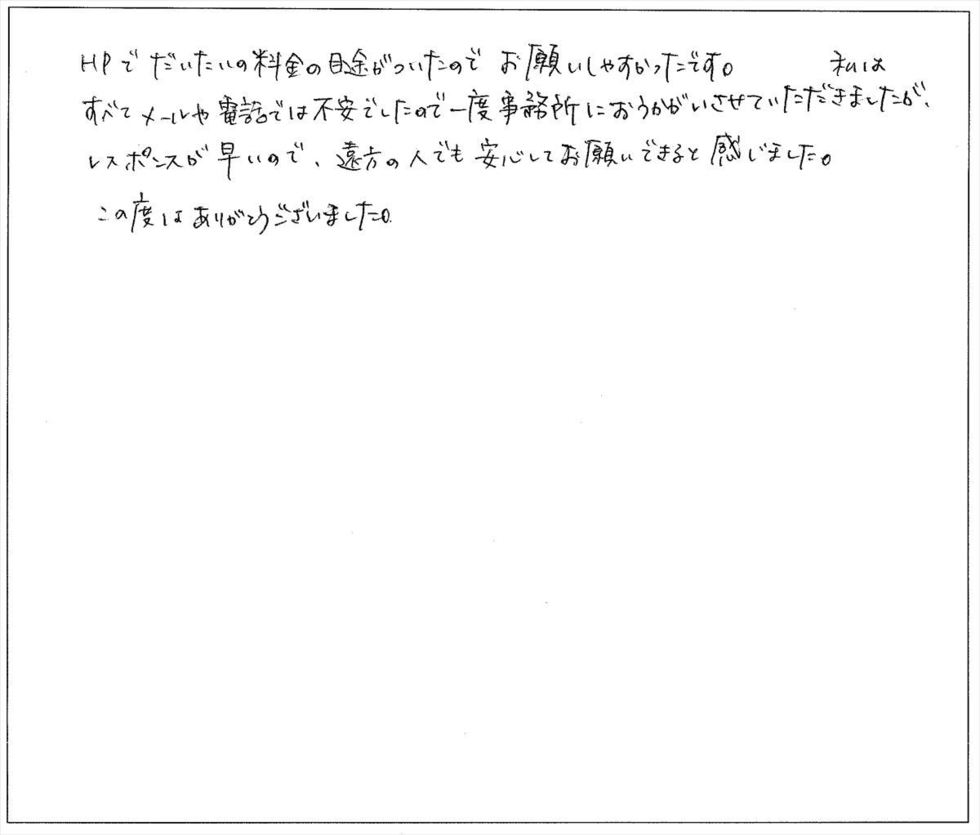 HPでだいたいの料金の目途がついたのでお願いしやすかったです。 私は
すべてメールや電話では不安でしたので一度事務所におうかがいさせていただきましたが、
レスポンスが早いので、遠方の人でも安心してお願いできると感じました。
この度はありがとうございました。